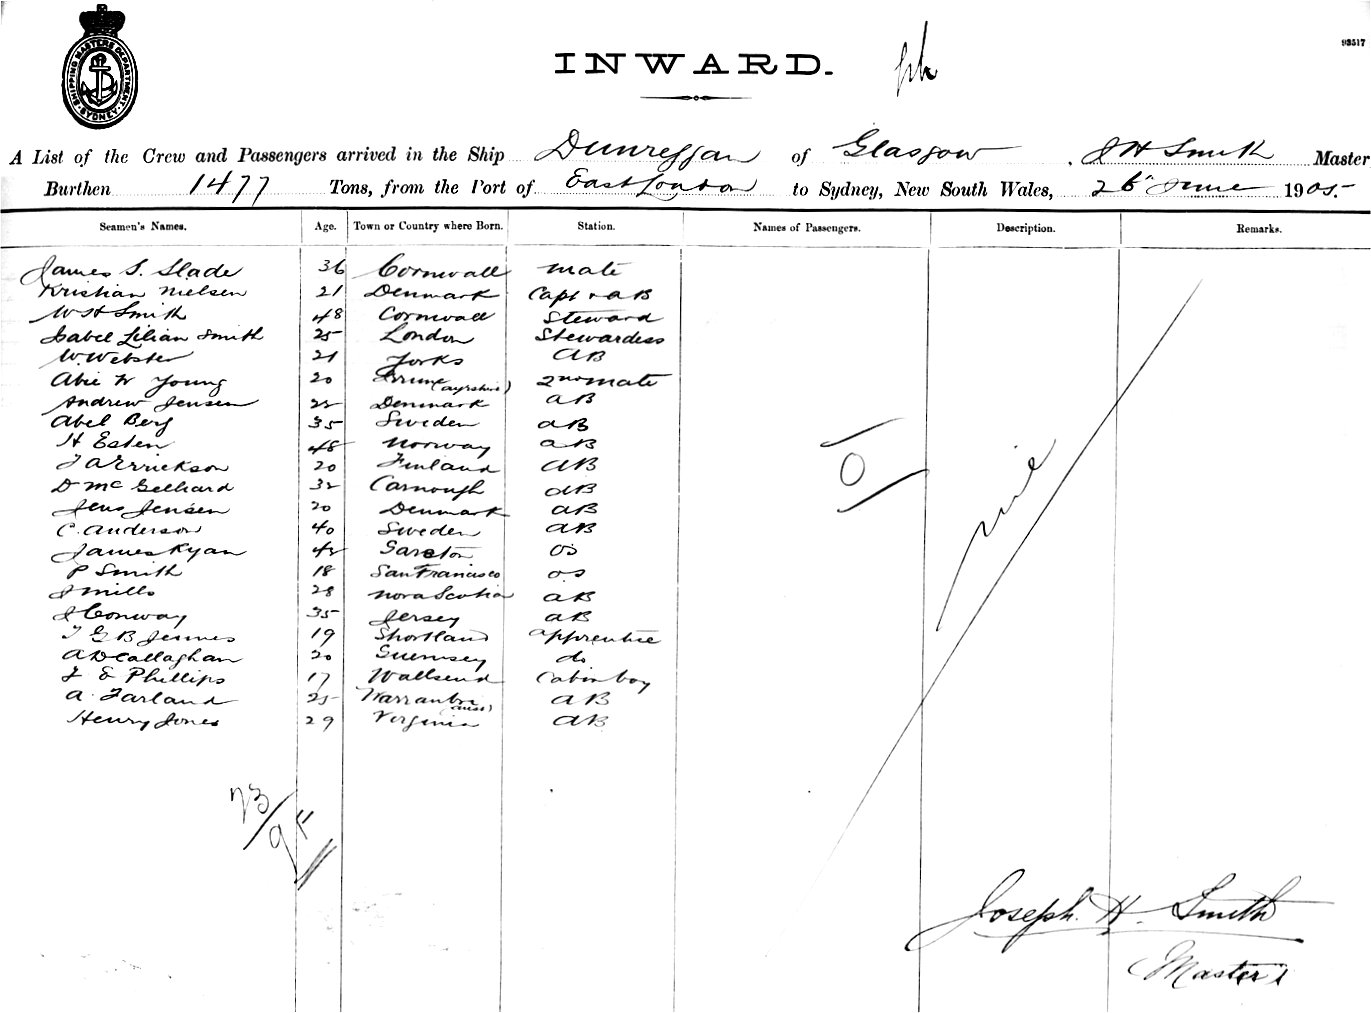 93517
SHIPPING MASTERS DEPARTMENT. SYDNEY
INWARD.
A List of the Crew and Passengers arrived in the Ship Dunreggan of Glasgow, J H Smith Master
Burthen 1477 Tons, from the Port of East London to Sydney, New South Wales, 26th June 1905.
Seamen's Names. Age. Town or Country where Born. Station. Names of Passengers. Description. Remarks.
James S. Slade 36 Cornwall mate
Kristian Nielsen 21 Denmark Capt + AB
W H Smith 48 Cornwall Steward
Isabel Lilian Smith 25 London Stewardess
W. Webster 21 Yorks AB
Abie W Young 20 (ayrshire) 2nd mate
Andrew Jensen 22 Denmark AB
Abel Berg 35 Sweden AB
H Esten 48 Norway AB
Errickson 20 Finland AB
D McGelhard 32 Carnough AB
Jens Jensen 20 Denmark AB
C. Anderson 40 Sweden AB
James Ryan 42 Garston OS
P Smith 18 San Francisco OS
J Mills 28 Nova Scotia AB
J Conway 35 Jersey AB
T G B Jennes 19 Shortland apprentice
A D Callaghan 20 Guernsey do
F E Phillips 17 Wallsend Cabin boy
A. Farland 25 AB
Henry Jones 29 Virginia AB
O
nil
23/95
Joseph. H. Smith
Master